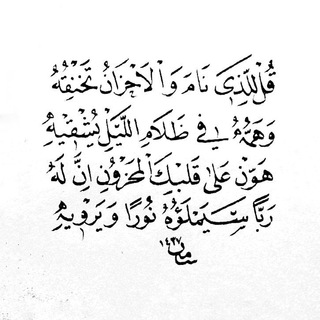 قُلْ لِلَّذِي نَامَ وَالْاَحْزَانُ تَخْنِقُهُ
وَهَمُّهُ فِي ظَلَامِ اللَّيْلِ يُشْقِيْهِ
هَوِّنْ عَلَى قَلْبِكَ الْمَحْزُونِ اِنَّ لَهُ
رَبًّا سَيَمْلَؤُهُ نُورًا وَيَرْوِيْهِ
١٤٣٧